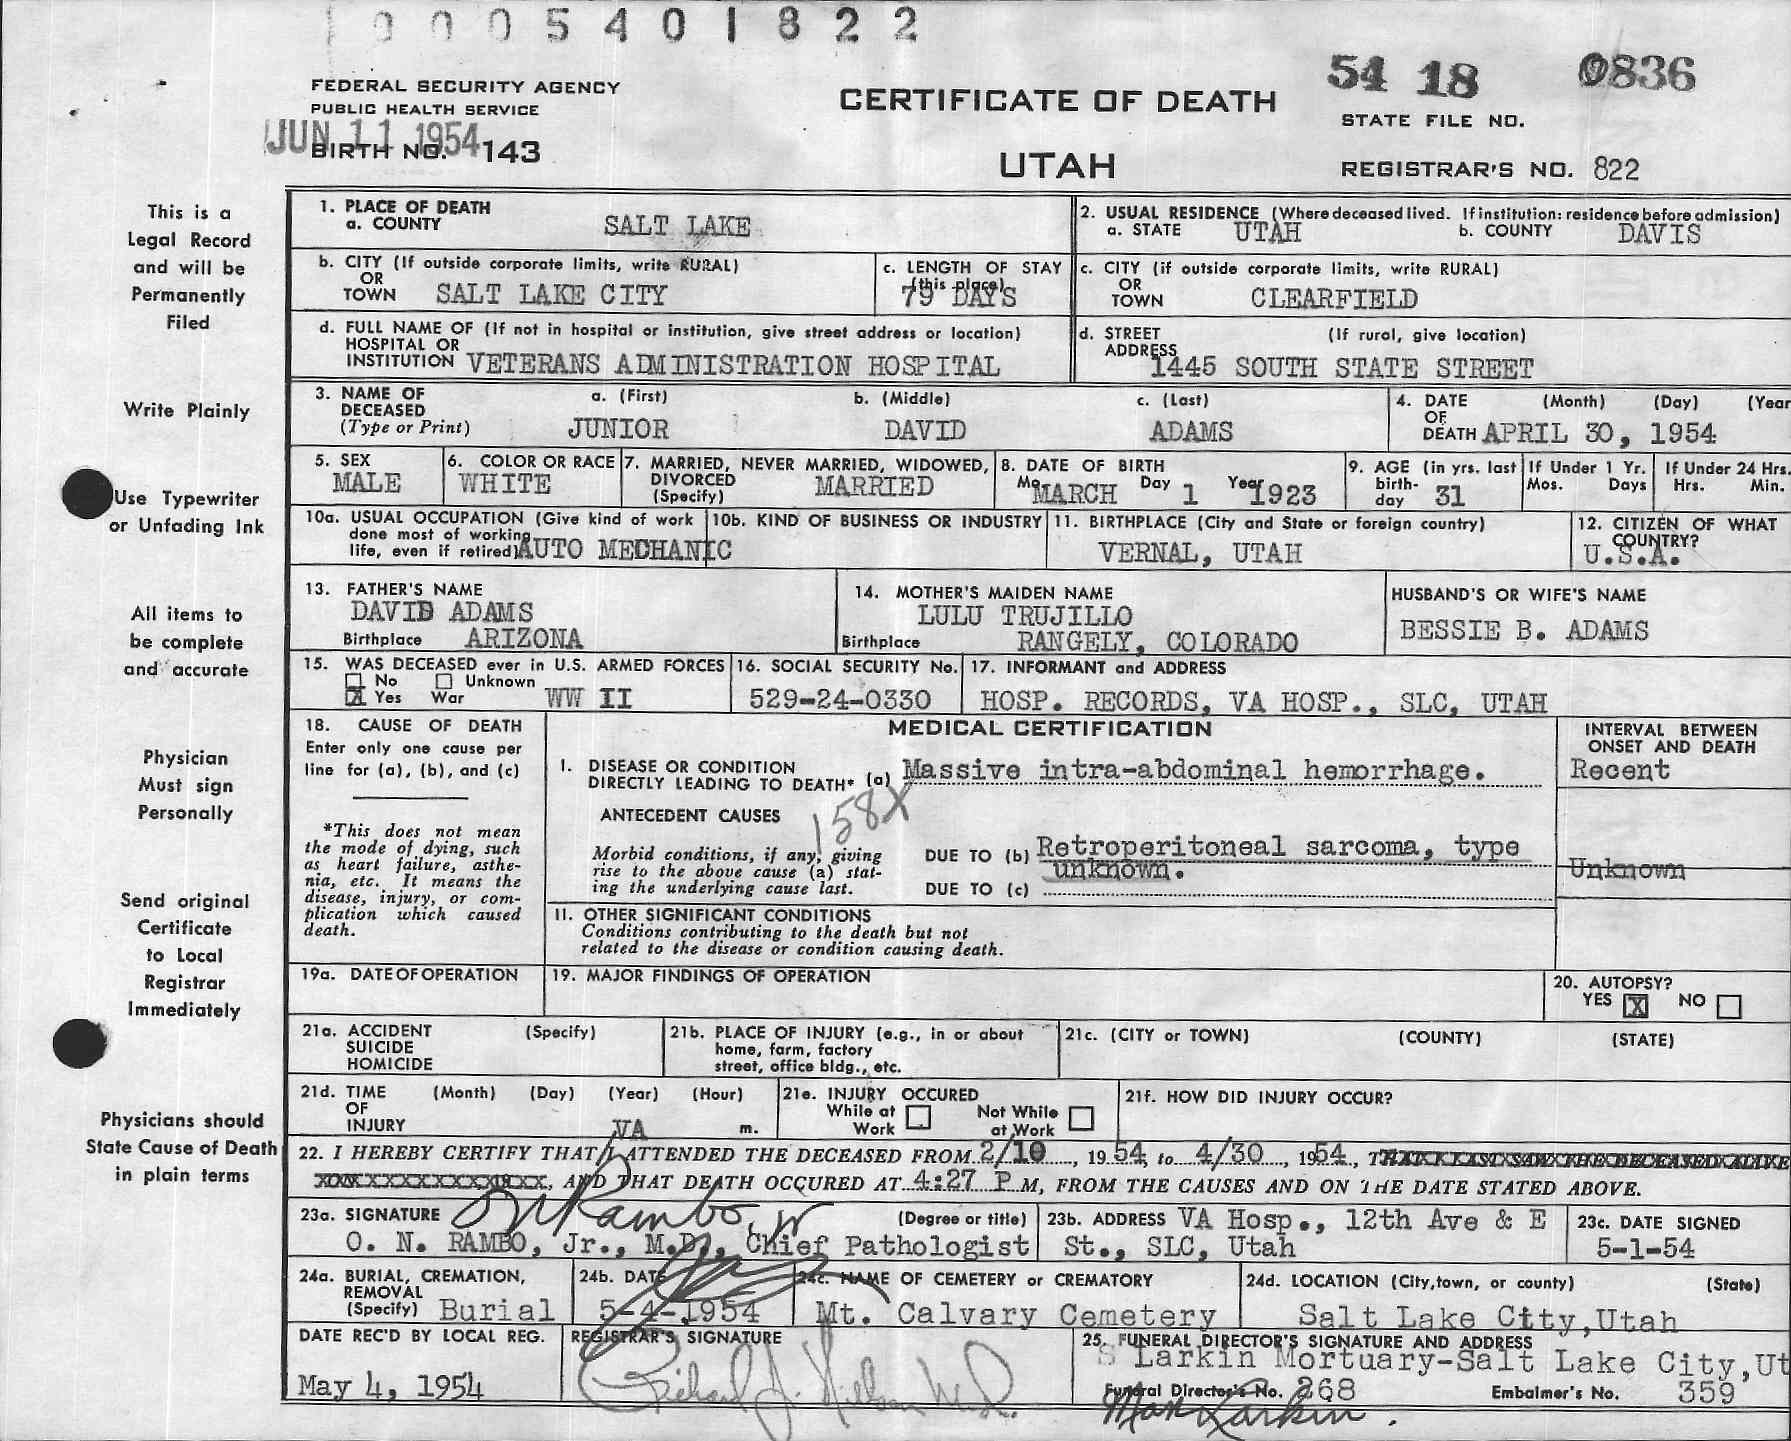 1 0 0 0 5 4 0 1 8 2 2
54 18 0836
FEDERAL SECURITY AGENCY
PUBLIC HEALTH SERVICE
CERTIFICATE OF DEATH
STATE FILE NO.
JUN 11 1954
BIRTH NO. 143
UTAH
REGISTRAR'S NO. 822
This is a
Legal Record
and will be
Permanently
Filed
Write Plainly
Use Typewriter
or Unfading Ink
All items to
be complete
and accurate
Physician
Must sign
Personally
Send original
Certificate
to Local
Registrar
Immediately
Physicians should
State Cause of Death
in plain terms
1. PLACE OF DEATH
a. COUNTY SALT LAKE
2. USUAL RESIDENCE (Where deceased lived. If institution: residence before admission)
a. STATE UTAH b. COUNTY DAVIS
b. CITY (If outside corporate limits, write RURAL)
OR
TOWN SALT LAKE CITY
c. LENGTH OF STAY
(this place)
79 DAYS
c. CITY (if outside corporate limits, write RURAL)
OR
TOWN CLEARFIELD
d. FULL NAME OF (If not in hospital or institution, give street address or location)
HOSPITAL OR
INSTITUTION VETERANS ADMINISTRATION HOSPITAL
d. STREET (If rural, give location)
ADDRESS
1445 SOUTH STATE STREET
3. NAME OF a. (First) b. (Middle) c. (Last)
DECEASED
(Type or Print) JUNIOR DAVID ADAMS
4. DATE (Month) (Day) (Year
OF
DEATH APRIL 30, 1954
5. SEX
MALE
6. COLOR OR RACE
WHITE
7. MARRIED, NEVER MARRIED, WIDOWED,
DIVORCED
(Specify) MARRIED
8. DATE OF BIRTH
Mo. MARCH Day 1 Year 1923
9. AGE (in yrs. last
birth-
day 31
If Under 1 Yr.
Mos. Days
If Under 24 Hrs.
Hrs. Min.
10a. USUAL OCCUPATION (Give kind of work
done most of working
life, even if retired) AUTO MECHANIC
10b. KIND OF BUSINESS OR INDUSTRY
11. BIRTHPLACE (City and State or foreign country)
VERNAL, UTAH
12. CITIZEN OF WHAT
COUNTRY?
U.S.A.
13. FATHER'S NAME
DAVID ADAMS
Birthplace ARIZONA
14. MOTHER'S MAIDEN NAME
LULU TRUJILLO
Birthplace RANGELY, COLORADO
HUSBAND'S OR WIFE'S NAME
BESSIE B. ADAMS
15. WAS DECEASED ever in U.S. ARMED FORCES
No Unknown
X Yes War WW II
16. SOCIAL SECURITY No.
529-24-0330
17. INFORMANT and ADDRESS
HOSP. RECORDS, VA HOSP., SLC, UTAH
18. CAUSE OF DEATH
Enter only one cause per
line for (a), (b), and (c)
*This does not mean
the mode of dying, such
as heart failure, asthe-
nia, etc. It means the
disease, injury, or com-
plication which caused
death.
MEDICAL CERTIFICATION
INTERVAL BETWEEN
ONSET AND DEATH
I. DISEASE OR CONDITION
DIRECTLY LEADING TO DEATH* (a) Massive intra-abdominal hemorrhage.
Recent
158X
ANTECEDENT CAUSES
Morbid conditions, if any, giving
rise to the above cause (a) stat-
ing the underlying cause last.
DUE TO (b) Retroperitoneal sarcoma, type
unknown.
Unknown
DUE TO (c)
II. OTHER SIGNIFICANT CONDITIONS
Conditions contributing to the death but not
related to the disease or condition causing death.
19a. DATE OF OPERATION
19. MAJOR FINDINGS OF OPERATION
20. AUTOPSY?
YES X NO
21a. ACCIDENT (Specify)
SUICIDE
HOMICIDE
21b. PLACE OF INJURY (e.g., in or about
home, farm, factory
street, office bldg., etc.
21c. (CITY or TOWN) (COUNTY) (STATE)
21d. TIME (Month) (Day) (Year) (Hour)
OF
INJURY m.
21e. INJURY OCCURED
While at Work Not While at Work
21f. HOW DID INJURY OCCUR?
VA
22. I HEREBY CERTIFY THAT I ATTENDED THE DECEASED FROM 2/10, 1954, to 4/30, 1954, THAT I LAST SAW THE DECEASED ALIVE
AND THAT DEATH OCCURED AT 4:27 P M, FROM THE CAUSES AND ON THE DATE STATED ABOVE.
23a. SIGNATURE ON Rambo, Jr (Degree or title)
O. N. RAMBO, Jr., M.D., Chief Pathologist
23b. ADDRESS VA Hosp., 12th Ave & E
St., SLC, Utah
23c. DATE SIGNED
5-1-54
24a. BURIAL, CREMATION,
REMOVAL
(Specify) Burial
24b. DATE
5-4-1954
24c. NAME OF CEMETERY or CREMATORY
Mt. Calvary Cemetery
24d. LOCATION (City, town, or county) (State)
Salt Lake City, Utah
DATE REC'D BY LOCAL REG.
May 4, 1954
REGISTRAR'S SIGNATURE
Richard J. Nelson M.D.
25. FUNERAL DIRECTOR'S SIGNATURE AND ADDRESS
S Larkin Mortuary-Salt Lake City, Ut
Funeral Director's No. 268 Embalmer's No. 359
Max Larkin.